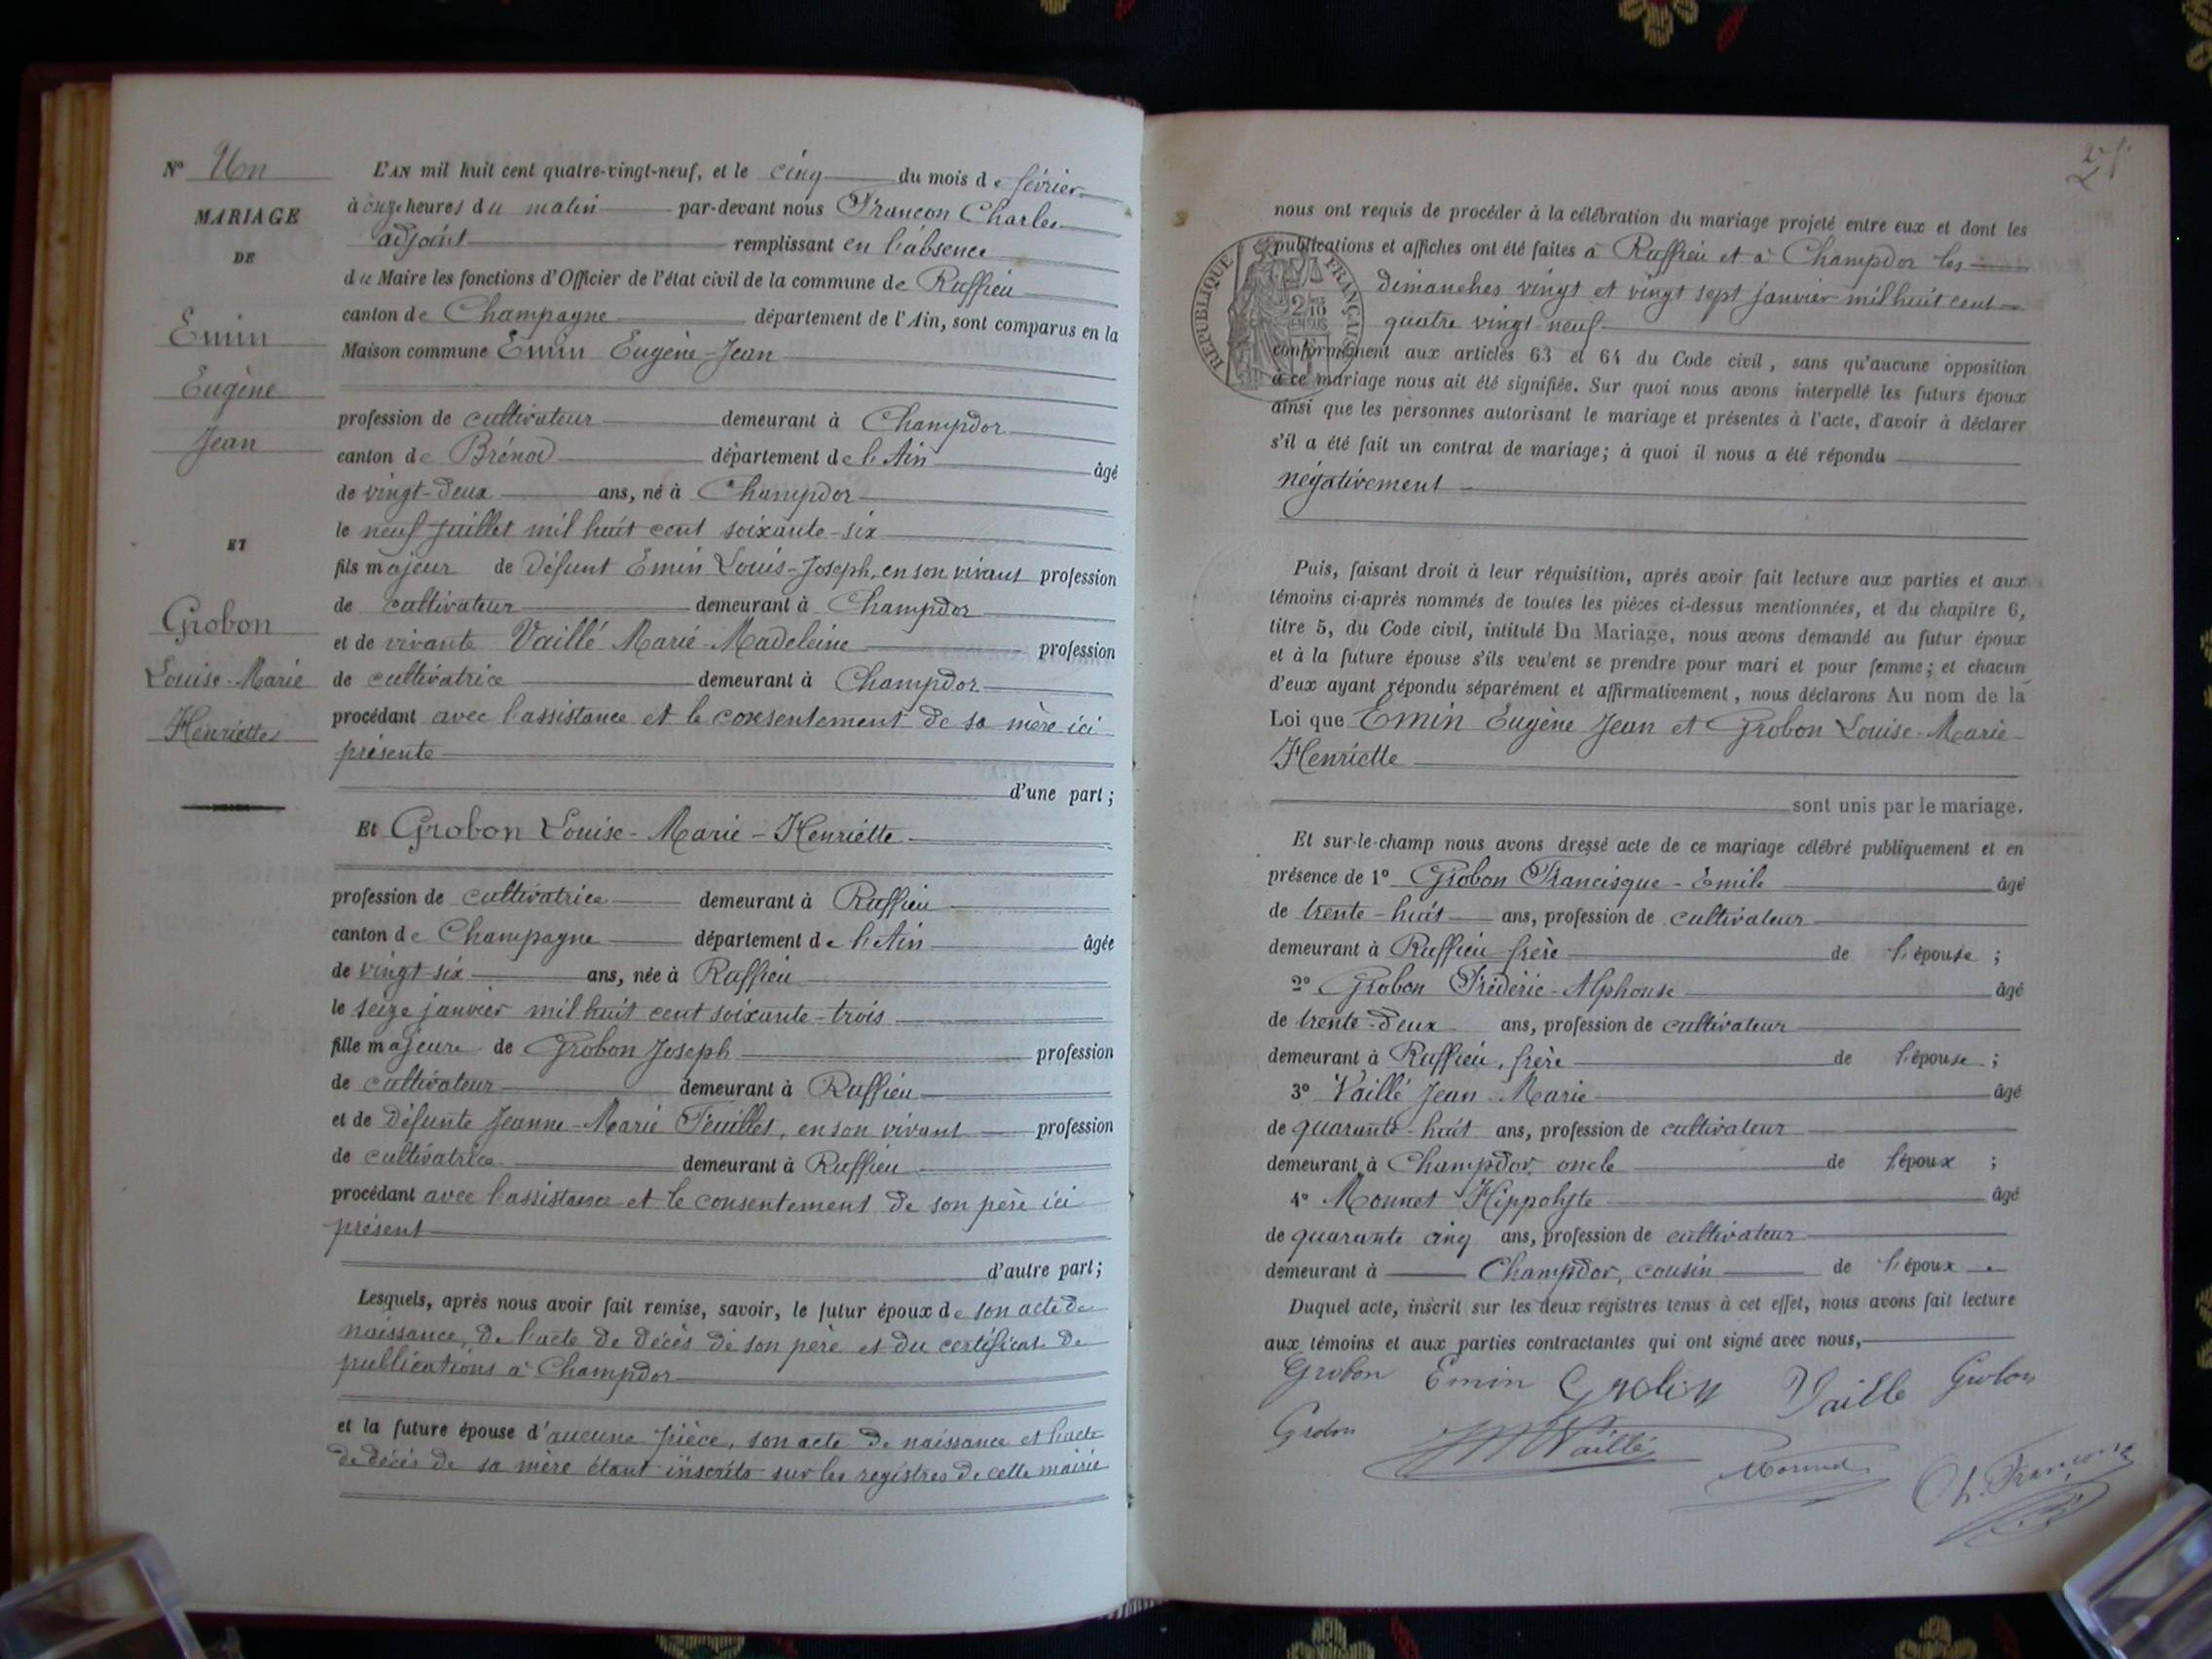 N° Un
MARIAGE
DE
Emin
Eugène
Jean
ET
Grobon
Louise-Marie
Henriette
L'AN mil huit cent quatre-vingt-neuf, et le cinq du mois de février
à onze heures du matin par-devant nous Françon Charles
adjoint remplissant en l'absence
du Maire les fonctions d'Officier de l'état civil de la commune de Ruffieu
canton de Champagne département de l'Ain, sont comparus en la
Maison commune Emin Eugène-Jean
profession de cultivateur demeurant à Champdor
canton de Brénod département de l'Ain âgé
de vingt-deux ans, né à Champdor
le neuf juillet mil huit cent soixante-six
fils majeur de défunt Emin Louis-Joseph, en son vivant profession
de cultivateur demeurant à Champdor
et de vivante Vaillé Marie-Madeleine profession
de cultivatrice demeurant à Champdor
procédant avec l'assistance et le consentement de sa mère ici
présente
d'une part;
Et Grobon Louise-Marie-Henriette
profession de cultivatrice demeurant à Ruffieu
canton de Champagne département de l'Ain âgée
de vingt-six ans, née à Ruffieu
le seize janvier mil huit cent soixante-trois
fille majeure de Grobon Joseph profession
de cultivateur demeurant à Ruffieu
et de défunte Jeanne-Marie Feuillet, en son vivant profession
de cultivatrice demeurant à Ruffieu
procédant avec l'assistance et le consentement de son père ici
présent
d'autre part;
Lesquels, après nous avoir fait remise, savoir, le futur époux de son acte de
naissance, de l'acte de décès de son père et du certificat de
publications à Champdor
et la future épouse d'aucune pièce, son acte de naissance et l'acte
de décès de sa mère étant inscrits sur les registres de cette mairie
nous ont requis de procéder à la célébration du mariage projeté entre eux et dont les
publications et affiches ont été faites à Ruffieu et à Champdor les
dimanches vingt et vingt sept janvier mil huit cent
quatre vingt neuf
RÉPUBLIQUE FRANÇAISE
conformément aux articles 63 et 64 du Code civil, sans qu'aucune opposition
à ce mariage nous ait été signifiée. Sur quoi nous avons interpellé les futurs époux
ainsi que les personnes autorisant le mariage et présentes à l'acte, d'avoir à déclarer
s'il a été fait un contrat de mariage; à quoi il nous a été répondu
négativement
Puis, faisant droit à leur réquisition, après avoir fait lecture aux parties et aux
témoins ci-après nommés de toutes les pièces ci-dessus mentionnées, et du chapitre 6,
titre 5, du Code civil, intitulé Du Mariage, nous avons demandé au futur époux
et à la future épouse s'ils veulent se prendre pour mari et pour femme; et chacun
d'eux ayant répondu séparément et affirmativement, nous déclarons Au nom de la
Loi que Emin Eugène Jean et Grobon Louise-Marie-
Henriette
sont unis par le mariage.
Et sur-le-champ nous avons dressé acte de ce mariage célébré publiquement et en
présence de 1° Grobon Francisque-Emile âgé
de trente-huit ans, profession de cultivateur
demeurant à Ruffieu frère de l'épouse;
2° Grobon Frédéric-Alphonse âgé
de trente-deux ans, profession de cultivateur
demeurant à Ruffieu, frère de l'épouse;
3° Vaillé Jean-Marie âgé
de quarante-huit ans, profession de cultivateur
demeurant à Champdor, oncle de l'époux;
4° Monnet Hippolyte âgé
de quarante cinq ans, profession de cultivateur
demeurant à Champdor, cousin de l'époux
Duquel acte, inscrit sur les deux registres tenus à cet effet, nous avons fait lecture
aux témoins et aux parties contractantes qui ont signé avec nous,
Grobon Emin Grobon Vaille Grobon
Grobon JM Vaillé Monnet Ch. Françon